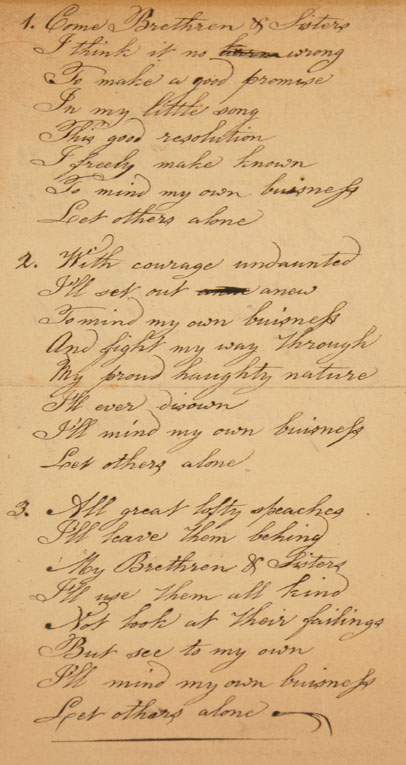 1. Come Brethren & Sisters
I think it no harm wrong
To make a good promise
In my little song
This good resolution
I freely make known
To mind my own buisness
Let others alone
2. With courage undaunted
I'll set out anew
To mind my own buisness
And fight my way through
My proud haughty nature
I'll ever disown
I'll mind my own buisness
Let others alone
3. All great lofty speaches
I'll leave them behind
My Brethren & Sisters
I'll use them all kind
Not look at their failings
But see to my own
I'll mind my own buisness
Let others alone